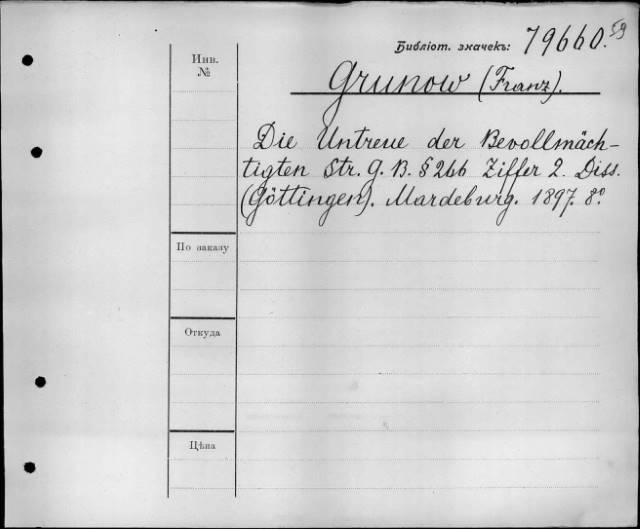 Библiот. значекъ: 79660.59
Инв.
№
Grunow (Franz).
Die Untreue der Bevollmäch-
tigten Str. G. B. § 266 Ziffer 2. Diss.
(Göttingen). Mardeburg. 1897. 8º
По заказу
Откуда
Цѣна